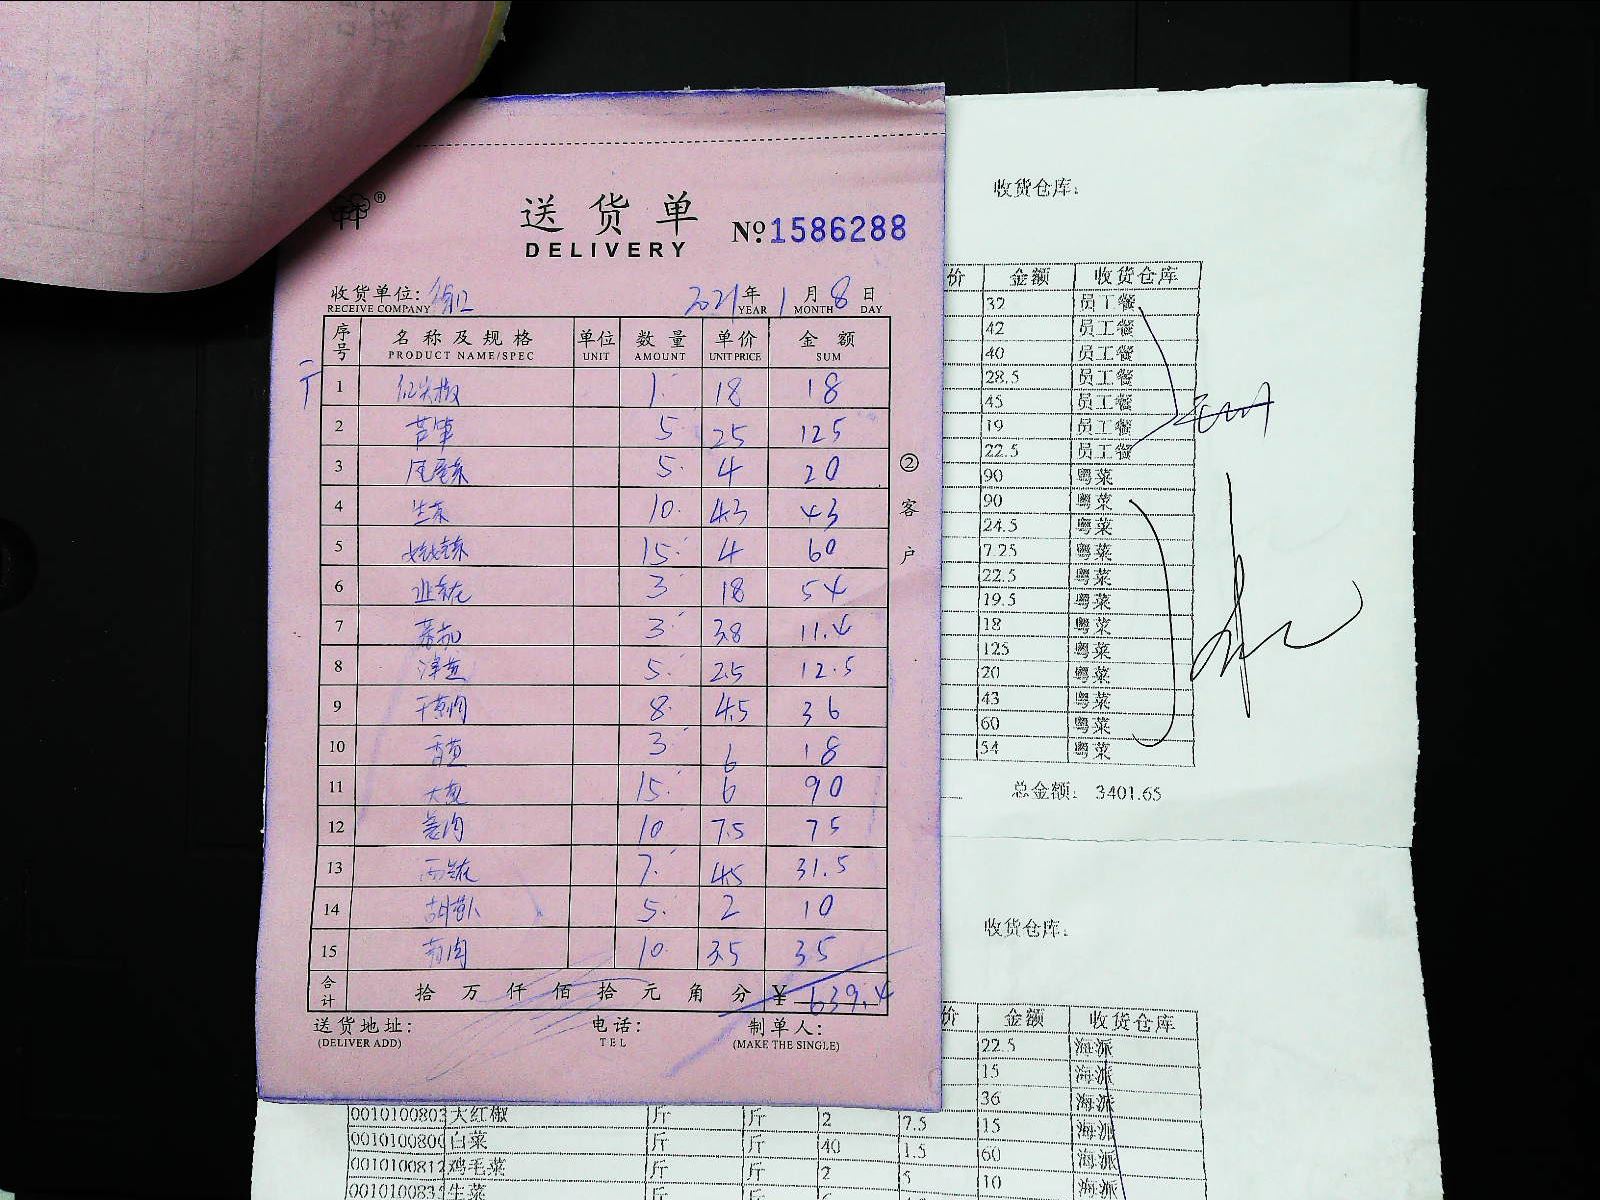 送货单
DELIVERY
No.1586288
收货单位:
RECEIVE COMPANY
2021年1月8日
YEAR MONTH DAY
序号 名称及规格 单位 数量 单价 金额
PRODUCT NAME/SPEC UNIT AMOUNT UNIT PRICE SUM
1 红尖椒 1 18 18
2 芦笋 5 25 125
3 5 4 20
4 生菜 10 4.3 43
5 娃娃菜 15 4 60
6 韭菜花 3 18 54
7 蕃茄 3 3.8 11.4
8 5 2.5 12.5
9 8 4.5 36
10 3 6 18
11 15 6 90
12 10 7.5 75
13 7 4.5 31.5
14 5 2 10
15 10 3.5 35
合计 拾 万 仟 佰 拾 元 角 分 ¥ 639.4
送货地址: 电话: 制单人:
(DELIVER ADD) TEL (MAKE THE SINGLE)
②客户
收货仓库:
价 金额 收货仓库
32 员工餐
42 员工餐
40 员工餐
28.5 员工餐
45 员工餐
19 员工餐
22.5 员工餐
90 粤菜
90 粤菜
24.5 粤菜
7.25 粤菜
22.5 粤菜
19.5 粤菜
18 粤菜
125 粤菜
20 粤菜
43 粤菜
60 粤菜
54 粤菜
总金额: 3401.65
收货仓库:
价 金额 收货仓库
22.5 海派
15 海派
36 海派
大红椒 斤 斤 2 7.5 15 海派
白菜 斤 斤 40 1.5 60 海派
鸡毛菜 斤 斤 2 5 10 海派
生菜